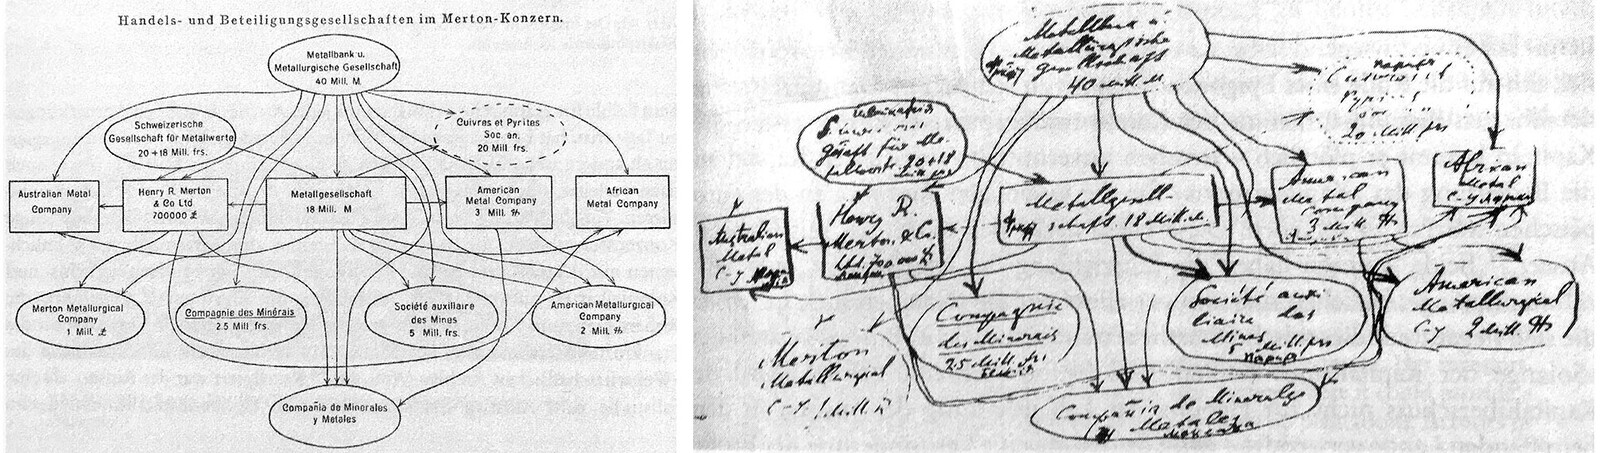 Handels- und Beteiligungsgesellschaften im Merton-Konzern.
Metallbank u.
Metallurgische Gesellschaft
40 Mill. M
Schweizerische
Gesellschaft für Metallwerte
20+18 Mill. frs.
Cuivres et Pyrites
Soc. an.
20 Mill. frs.
Australian Metal
Company
Henry R. Merton
& Co Ltd
700000 £
Metallgesellschaft
18 Mill. M
American
Metal Company
3 Mill. $
African
Metal Company
Merton Metallurgical
Company
1 Mill. £
Compagnie des Minérais
2.5 Mill. frs.
Société auxiliaire
des Mines
5 Mill. frs.
American Metallurgical
Company
2 Mill. $
Compañia de Minerales
y Metales
Metallbank u.
Metallurgische
Gesellschaft
40 Mill. M
20+18
20 Mill. frs
Henry R.
Merton & Co.
Ltd. 700 000 £
Metallgesell-
schaft 18 Mill. M.
American
Metal
Company
3 Mill. $
African
Metal
C-y
Australian
Metal
C-y
Meriton
Metallurgial
C-y 1 Mill. £
Compagnie
des Minerais
2.5 Mill. frs
Société auxi-
liaire des
Mines
5 Mill. frs
American
Metallurgical
C-y 2 Mill. $
Compañia de Minerales
y Metales